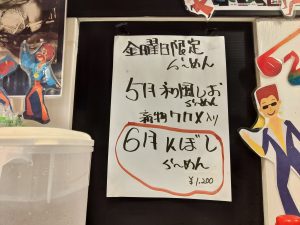 金曜日限定
らーめん
5月 和風しお
らーめん
ワカメ入り
6月 Kぼし
らーめん
¥1,200